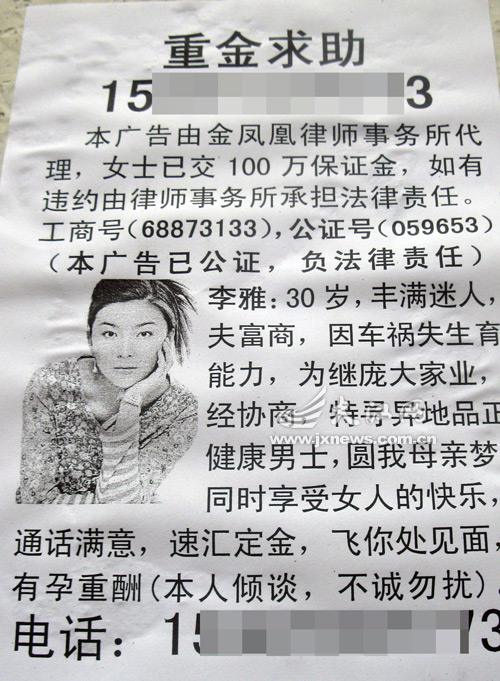 重金求助
15 3
本广告由金凤凰律师事务所代
理，女士已交 100 万保证金，如有
违约由律师事务所承担法律责任。
工商号(68873133)，公证号(059653)
（本广告已公证，负法律责任）
李雅：30 岁，丰满迷人，
夫富商，因车祸失生育
能力，为继庞大家业，
经协商，特寻异地品正
健康男士，圆我母亲梦
同时享受女人的快乐，
通话满意，速汇定金，飞你处见面，
有孕重酬(本人倾谈，不诚勿扰)
电话：15 73
www.jxnews.com.cn